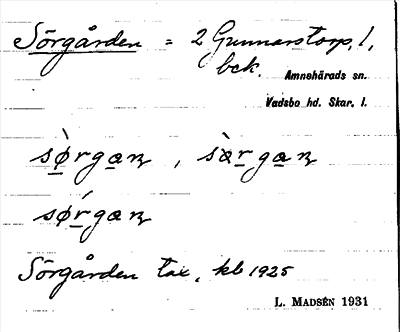 Sörgården = 2 Gunnarstorp, l,
bek.
Amnehärads sn.
Vadsbo hd. Skar. l.
sø̀rgan, sàrgan
sǿrgan
Sörgården tax, kb 1925
L. MADSÉN 1931